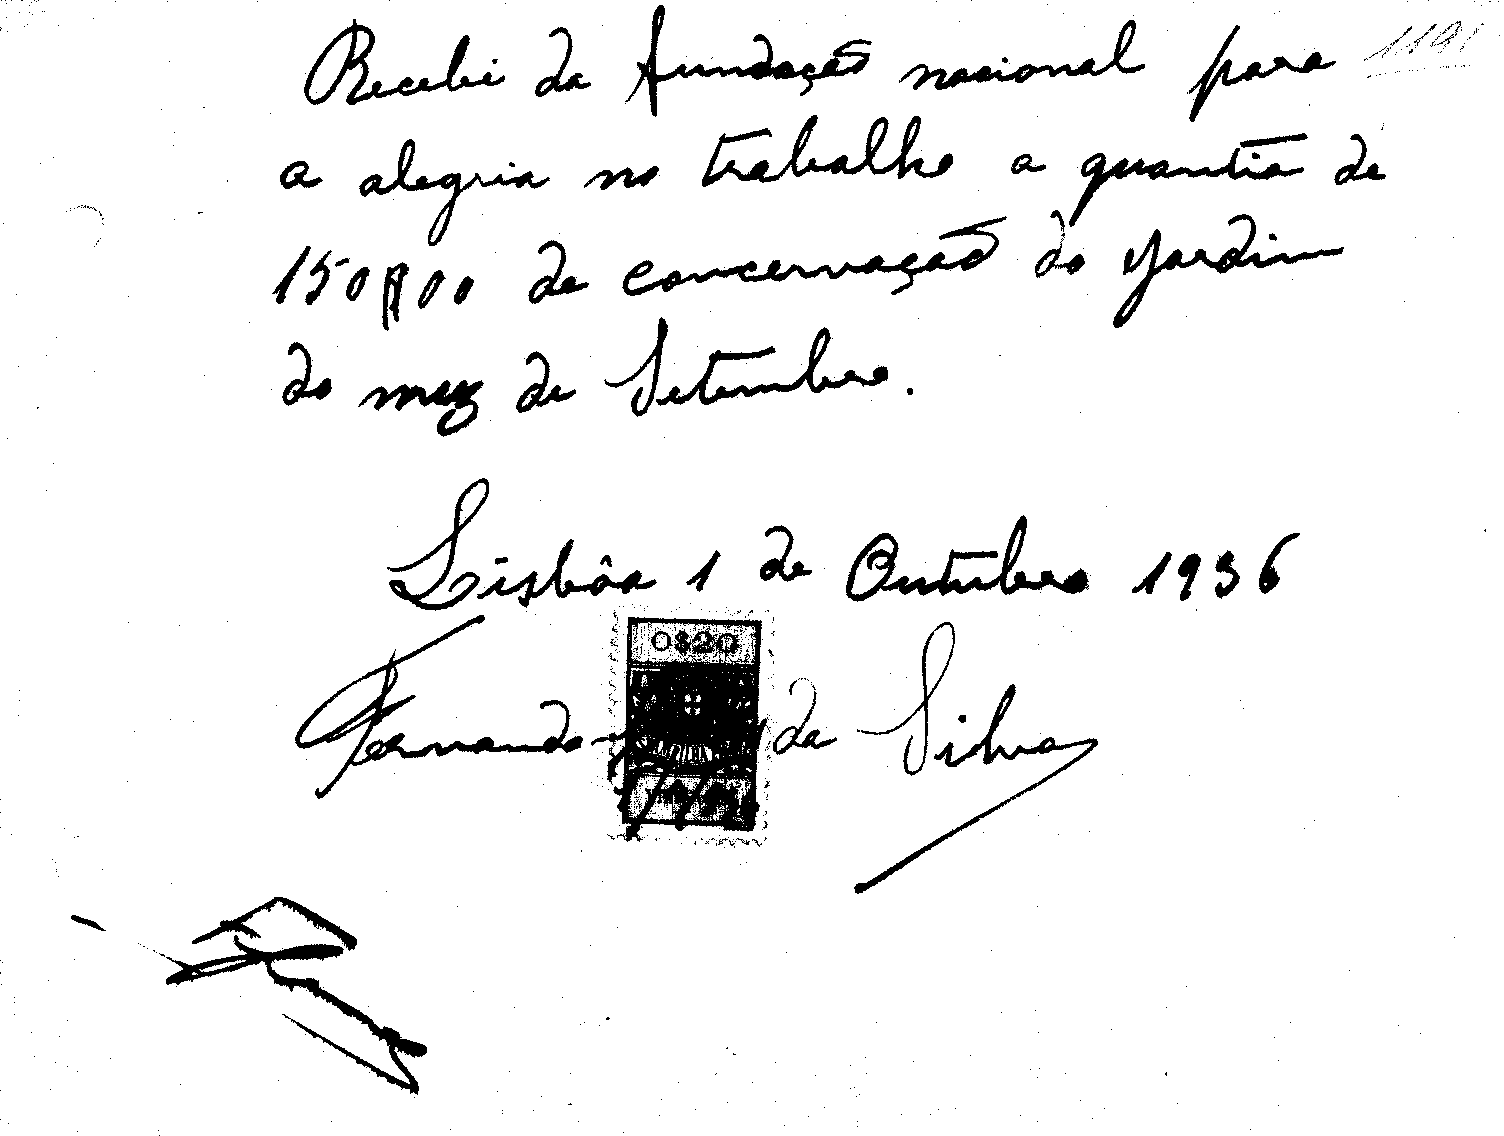 1191
Recebi da fundação nacional para
a alegria no trabalho a quantia de
150$00 de concervação do jardim
do mez de Setembro.
Lisbôa 1 de Outubro 1936
0$20
Fernando da Silva